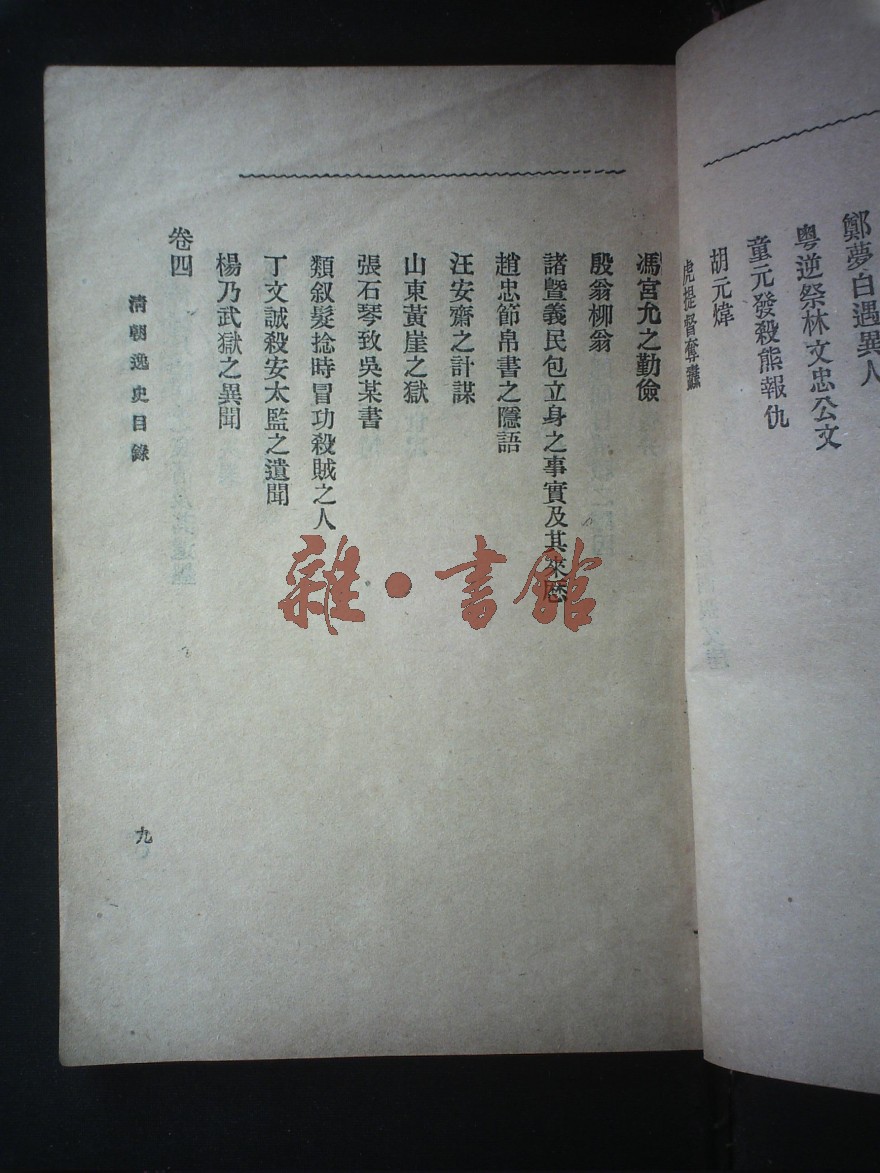 鄭夢白遇異人
粵逆祭林文忠公文
童元發殺熊報仇
胡元煒
虎提督奪
馮宮允之勤儉
殷翁柳翁
諸暨義民包立身之事實及其來歷
趙忠節帛書之隱語
汪安齋之計謀
山東黃崖之獄
張石琴致吳某書
類叙髮捻時冒功殺賊之人
丁文誠殺安太監之遺聞
楊乃武獄之異聞
卷四
清朝逸史目錄
九
雜·書館